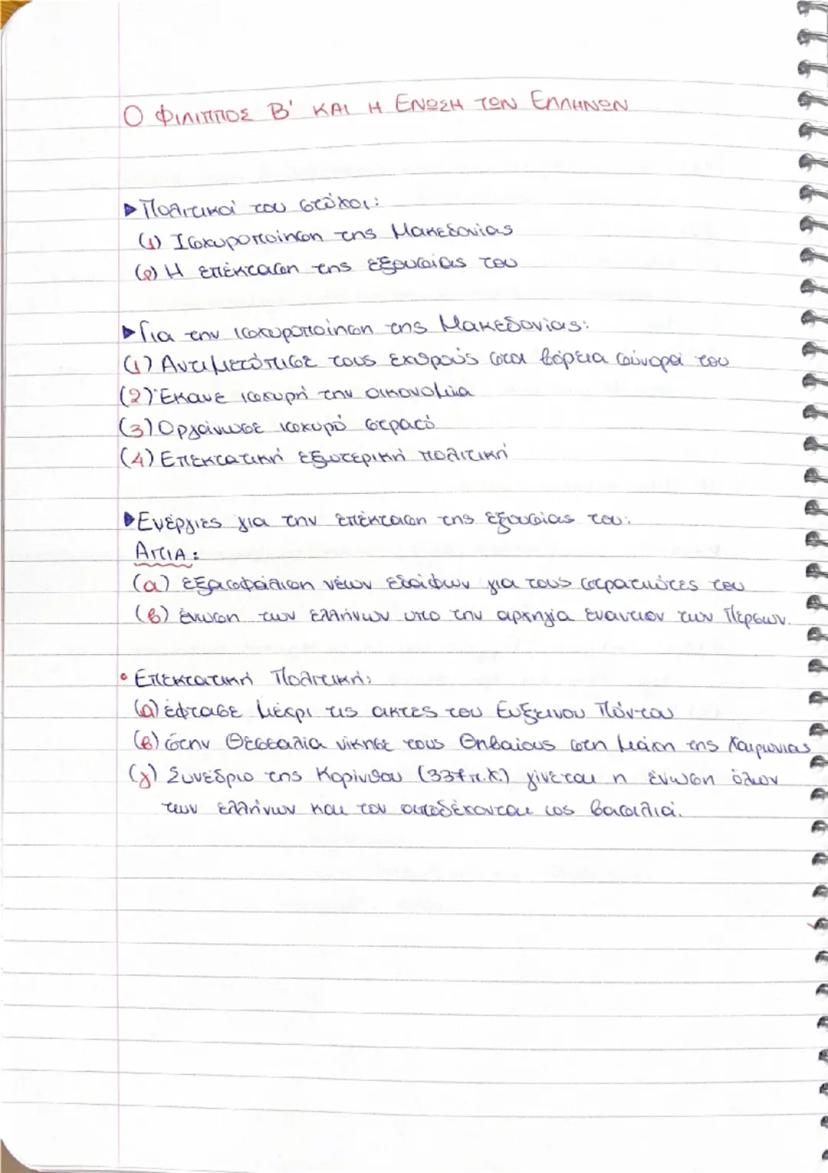 Ο ΦΙΛΙΠΠΟΣ Β' ΚΑΙ Η ΕΝΩΣΗ ΤΩΝ ΕΛΛΗΝΩΝ
▶Πολιτικοί του στόχοι:
(1) Ισχυροποίηση της Μακεδονίας
(2) Η επέκταση της εξουσίας του
▶Για την ισχυροποίηση της Μακεδονίας:
(1) Αντιμετώπισε τους εχθρούς στα βόρεια σύνορά του
(2) Έκανε ισχυρή την οικονομία
(3) Οργάνωσε ισχυρό στρατό
(4) Επεκτατική εξωτερική πολιτική
▶Ενέργιες για την επέκταση της εξουσίας του:
Αιτια:
(α) εξασφάλιση νέων εδάφων για τους στρατιώτες του
(β) ένωση των ελλήνων υπο την αρχηγία εναντιον των Περσων.
• Επεκτατική Πολιτική:
(α) έφτασε μέχρι τις ακτες του Ευξεινου Πόντου
(β) στην Θεσσαλία νίκησε τους Θηβαίους στη μάχη της Χαιρωνιας
(γ) Συνέδριο της Κορίνθου (337 π.Χ.) γίνεται η ένωση όλων
των ελλήνων και τον αποδέχονται ως βασιλιά.